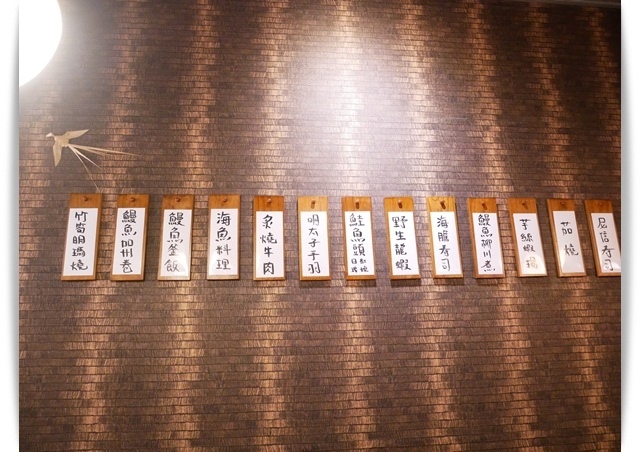 竹筍明瑪燒
鰻魚加州卷
鰻魚釜飯
海魚料理
炙燒牛肉
明太子手羽
鮭魚頭
野生龍蝦
海膽寿司
鰻魚柳川煮
芋絲蝦
茄燒
寿司